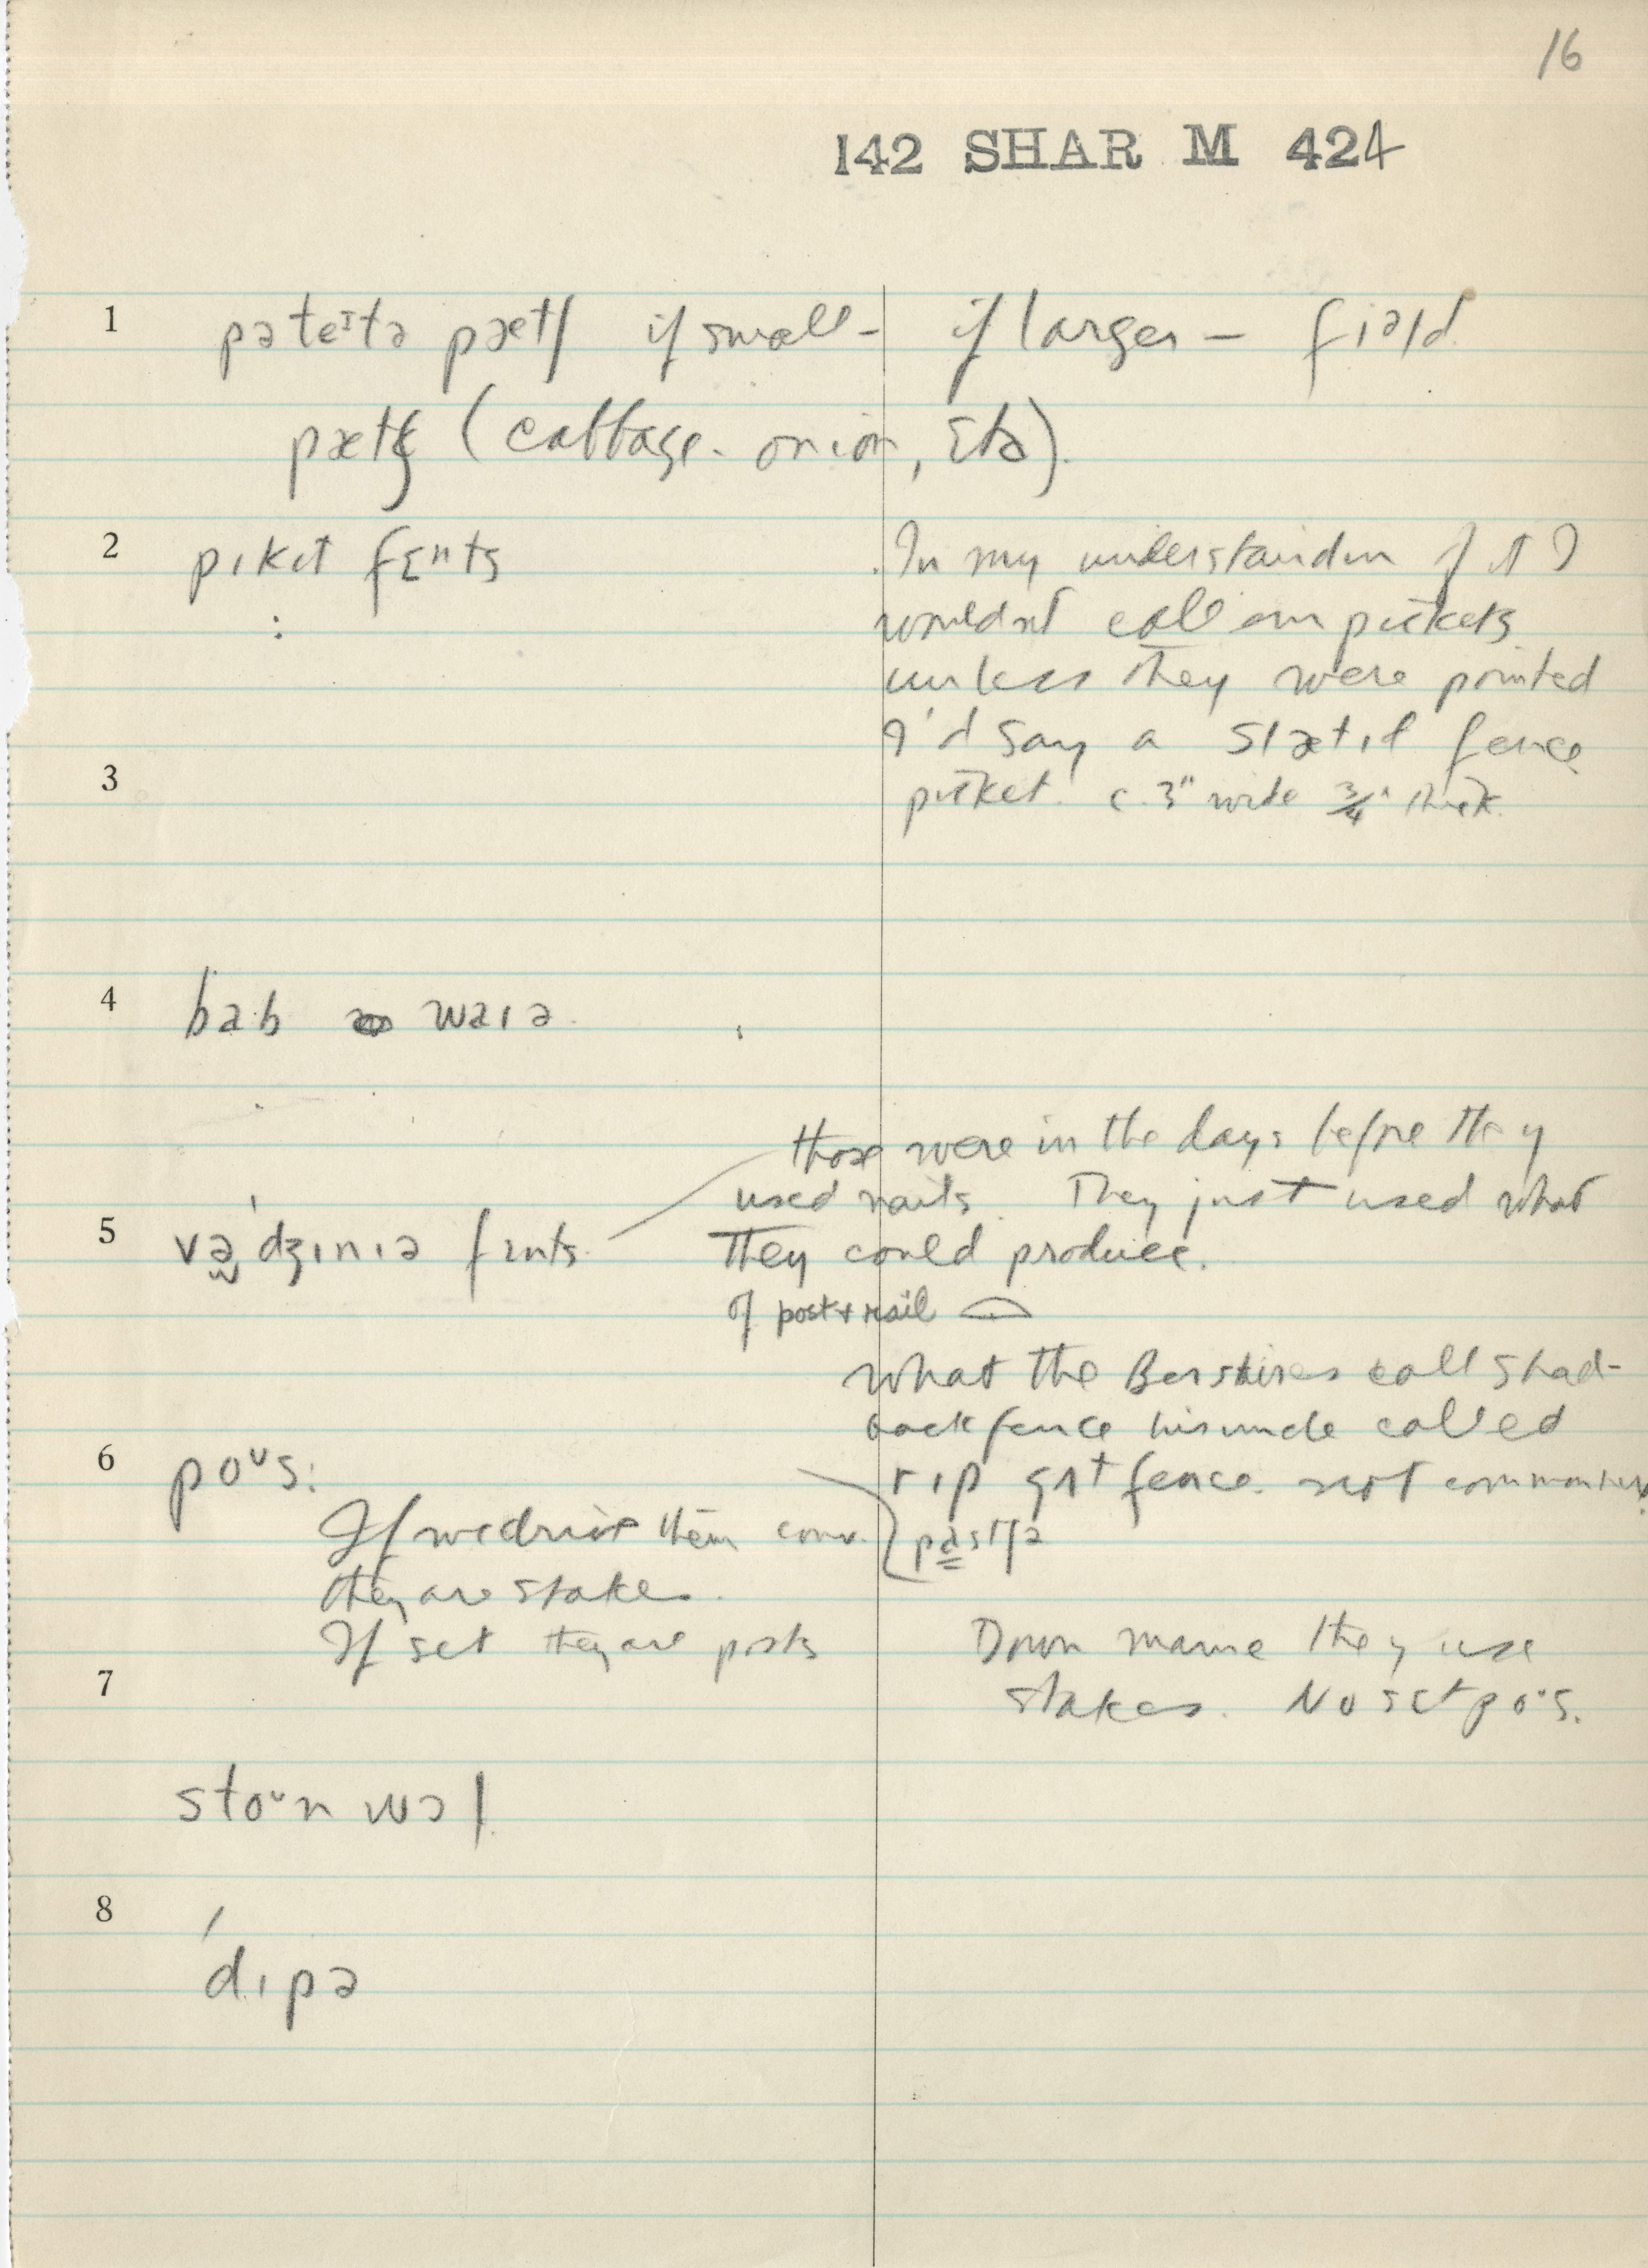 16
142 SHAR M 424
1 pəteɪtə pætʃ if small - if larger - fiəld
pætʃ (cabbage. onion, Etc).
2 pɪkɪt fɛnts In my understandin of it I
wouldnt call em pickets
unless they were pointed
I'd say a slætɪd fence
3 picket. c. 3" wide 3/4" thick.
4 bab waɪə.
those were in the days before they
used nails. They just used what
5 vədʒɪnɪə fɛnts They could produce.
of post + rail
What the Berkshires call shad-
back fence his uncle called
6 poᴜs: rɪp gʌt fence. not common
If we drive them conv. pastʃə
they are stakes.
If set they are posts Down maine they use
7 stakes. No set poᴜs.
stoᴜn wɔl
8 dɪpə